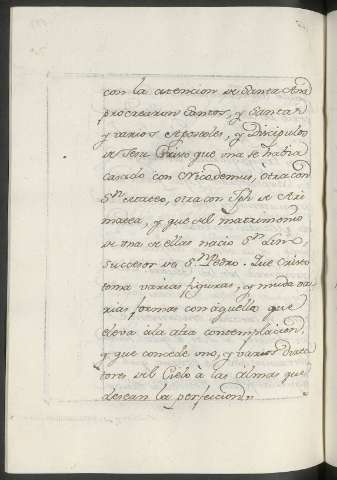 con la atencion de Santa Ana
procrearon Santos, y Santas
y varios Apostoles, y Discipulos
de Jesu Christo que una se habia
casado con Nicodemus, otra con
Sn. Matheo, otra con Jph de Ari
matea, y que del matrimonio
de una de ellas nacio Sn. Lino,
succesor de Sn. Pedro. Que Cristo
toma varias figuras, y muda va
rias formas con aquella que
eleva à la alta contemplacion,
y que concede uno, y varios
tores del Cielo à las Almas que
desean la perfeccion.